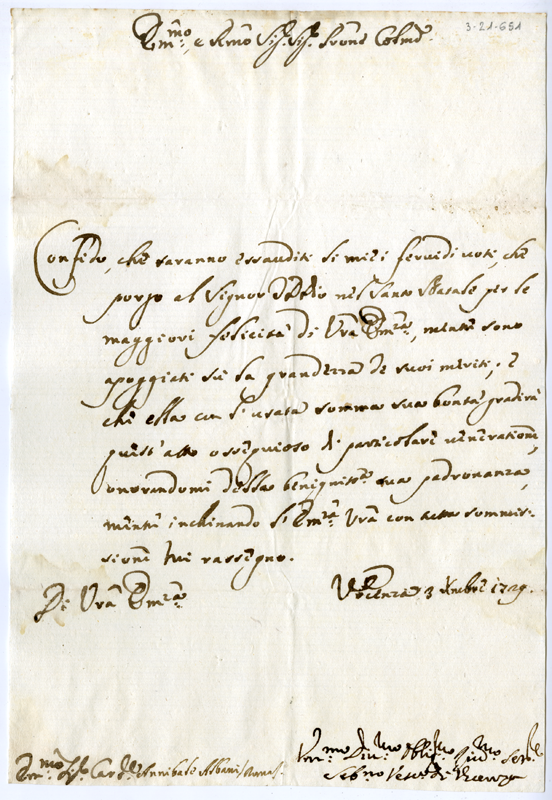 3-21-691
Em.mo, e Rmo Sig.r Sig.r Prone Colmo
Confido, che saranno essauditi li miei fervidi voti, che
porgo al Signor Iddio nel Santo Natale per le
maggiori felicità di Vrã Em.za, mentre sono
apoggiati sù la grandezza de suoi meriti; e
che ella con l'usata somma sua bontà gradirà
quest'atto ossequioso di particolare veneratione,
onorandomi della benignis.ma sua padronanza,
mentre inchinando l'Em.za Vrã con tutta sommis-
sione mi rassegno.
Di Vrã Em.za
Vicenza 3 Xmbre 1729.
Sig.r Car.le Annibale Albani Roma
Vesc.o di Vicenza